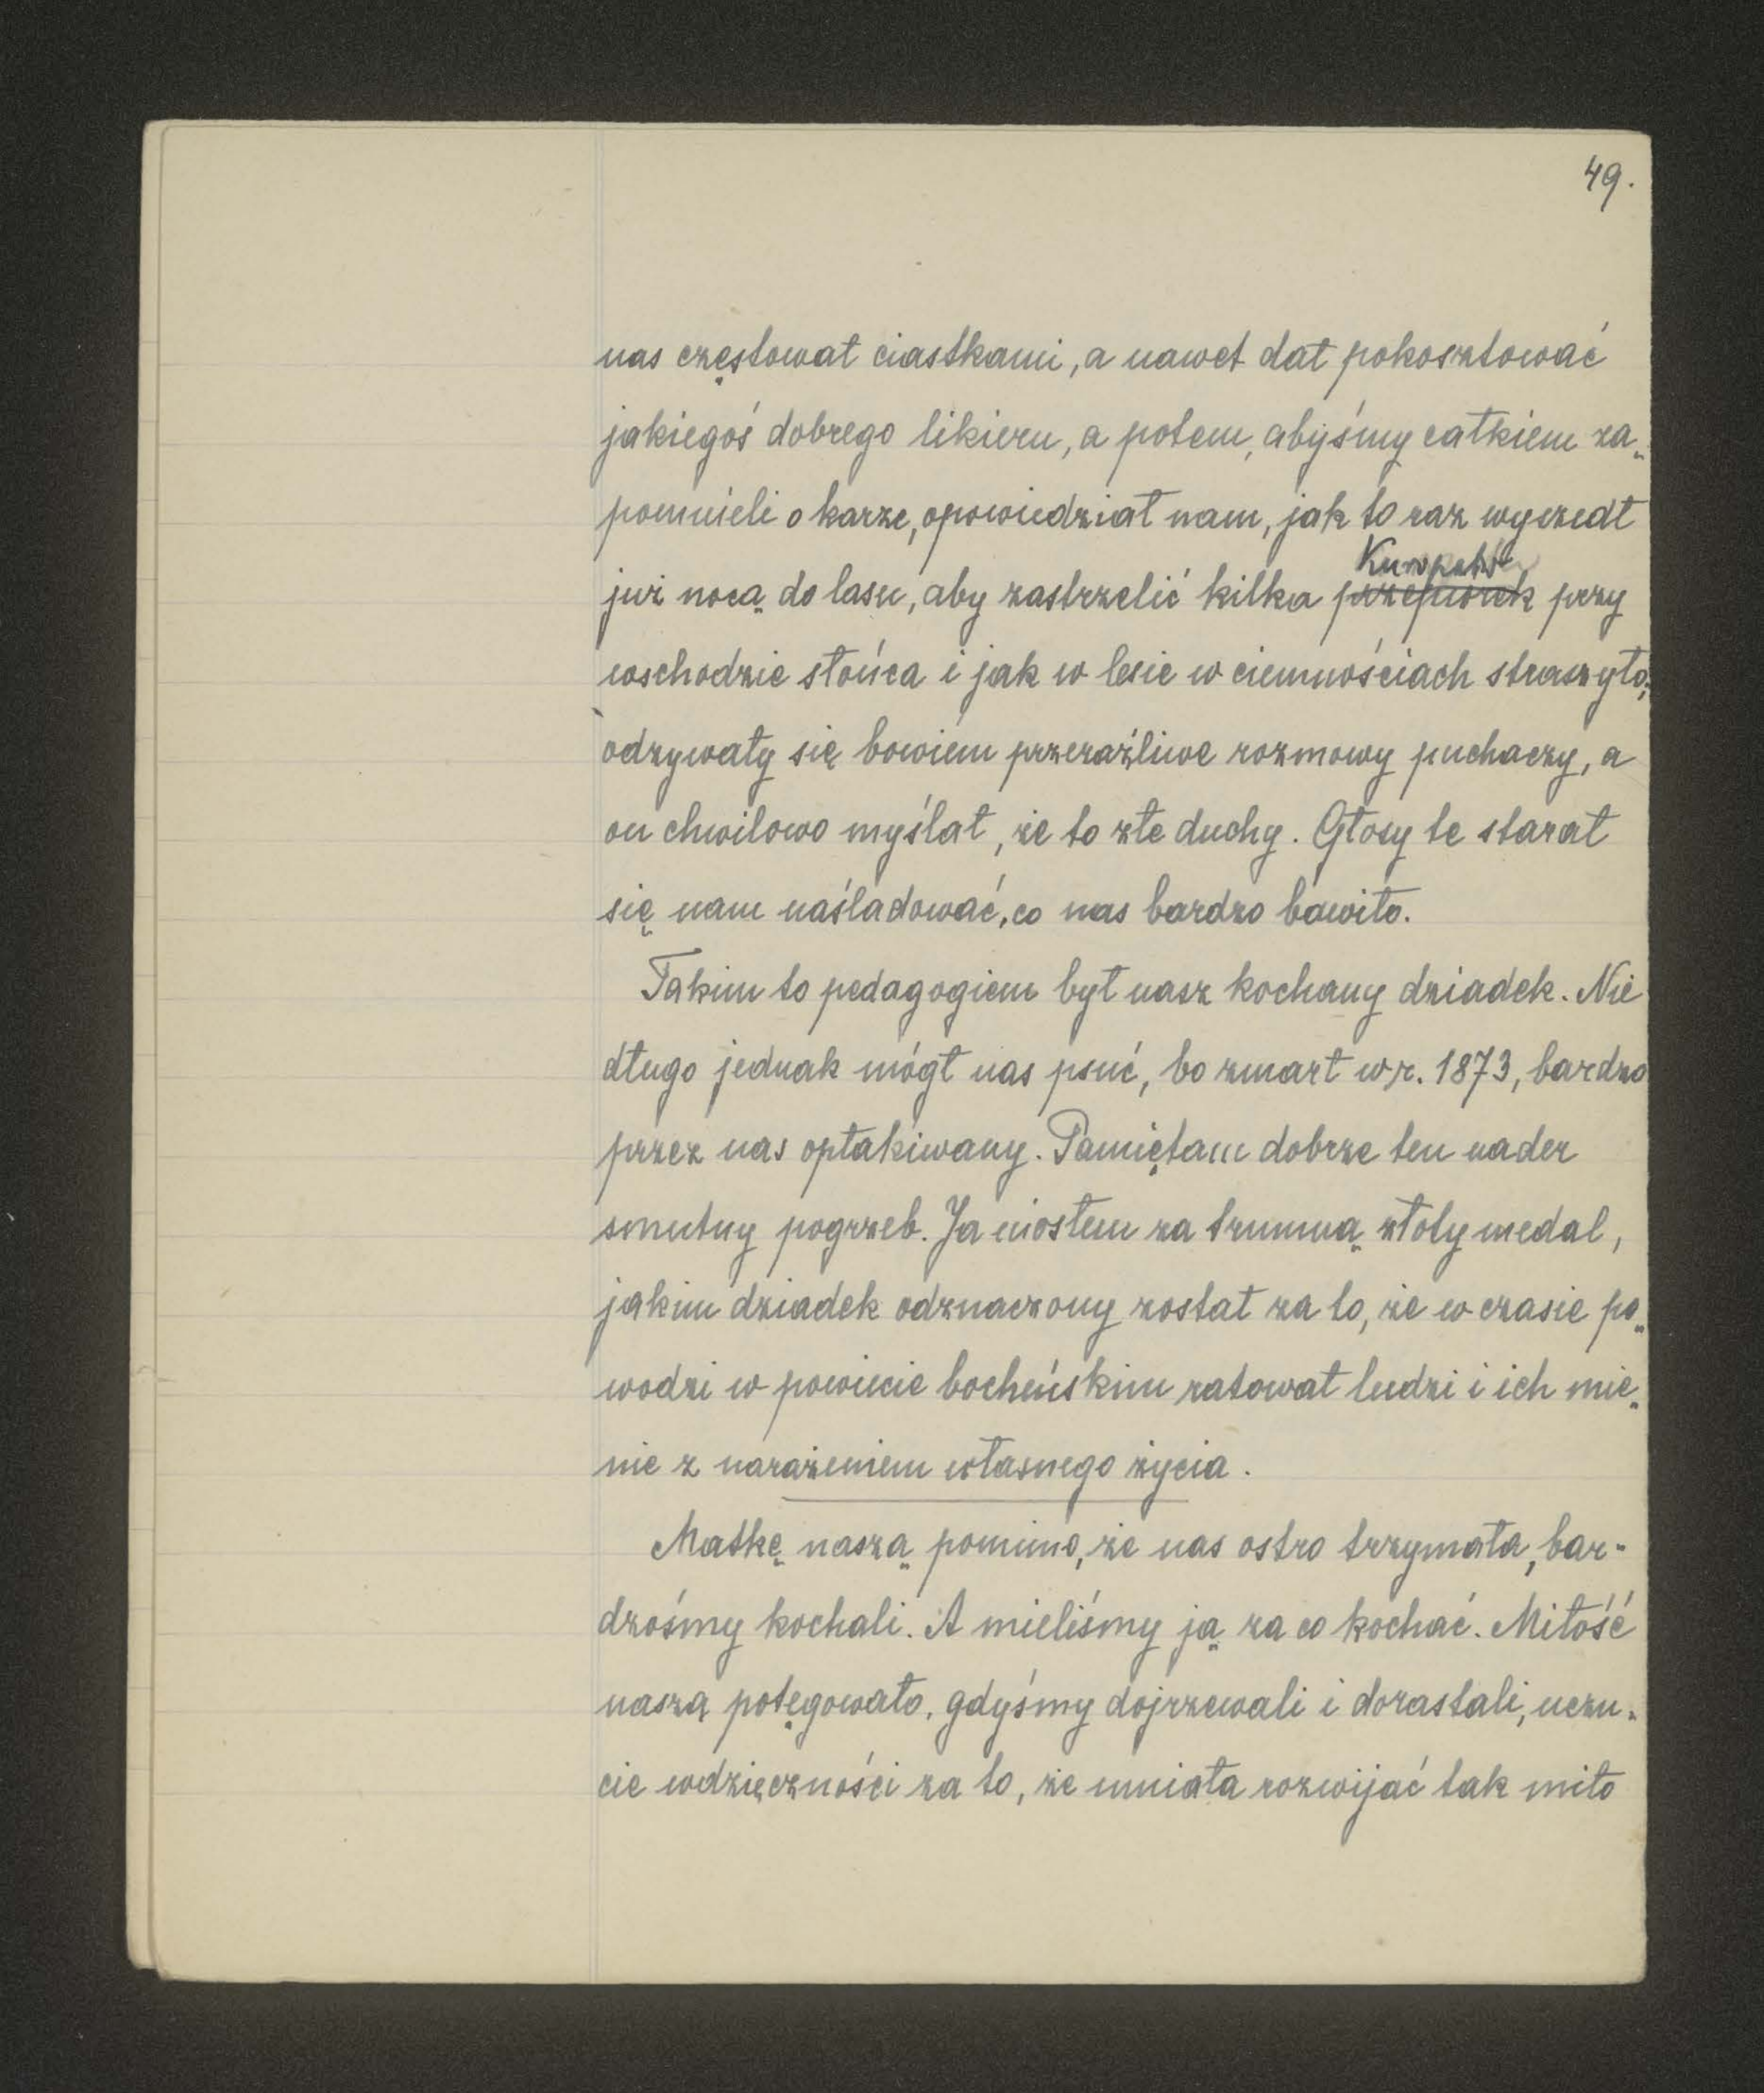 49.
nas częstował ciastkami, a nawet dał pokosztować
jakiegoś dobrego likieru, a potem, abyśmy całkiem za„
pomnieli o karze, opowiedział nam, jak to raz wyszedł
Kuropatw
już nocą do lasu, aby zastrzelić kilka przepiórek przy
wschodzie słońca i jak w lesie w ciemnościach straszyło;
odzywały się bowiem przeraźliwe rozmowy puchaczy, a
on chwilowo myślał, że to złe duchy. Głosy te starał
się nam naśladować, co nas bardzo bawiło.
Takim to pedagogiem był nasz kochany dziadek. Nie
długo jednak mógł nas psuć, bo zmarł w r. 1873, bardzo
przez nas opłakiwany. Pamiętam dobrze ten nader
smutny pogrzeb. Ja niosłem za trumną złoty medal,
jakim dziadek odznaczony został za to, że w czasie po„
wodzi w powiecie bocheńskim ratował ludzi i ich mie„
nie z narażeniem własnego życia.
Matkę naszą pomimo, że nas ostro trzymała, bar-
dzośmy kochali. A mieliśmy ją za co kochać. Miłość
naszą potęgowało, gdyśmy dojrzewali i dorastali, uczu-
cie wdzięczności za to, że umiała rozwijać tak miło